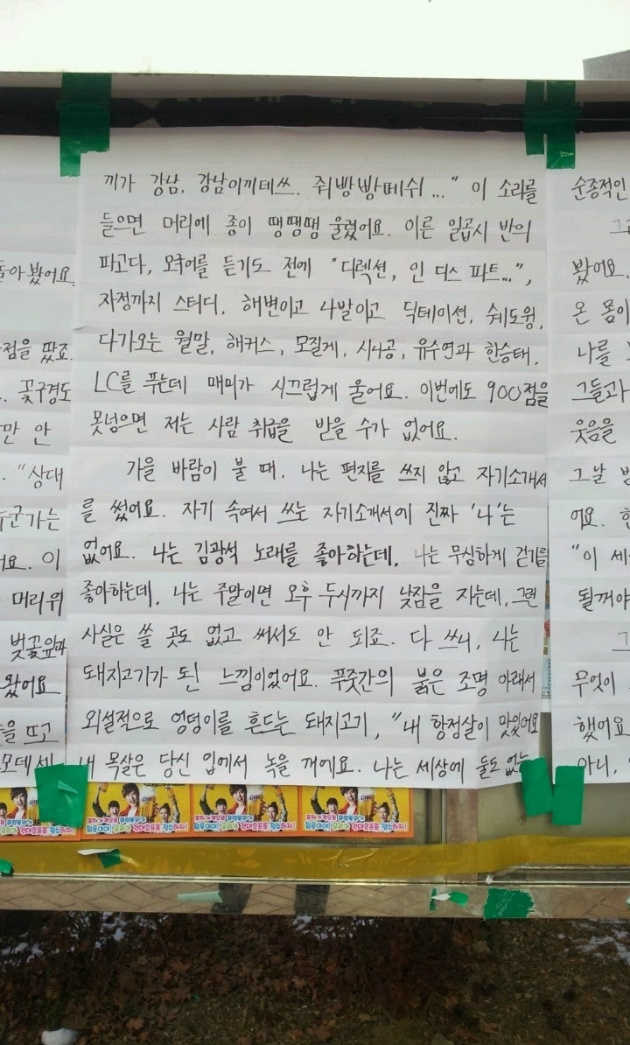 끼가 강남. 강남이끼데쓰. 쥐빵빵떼쉬..." 이 소리를
들으면 머리에 종이 땡땡땡 울렸어요. 이른 일곱시 반의
파고다, 모국어를 듣기도 전에 "디렉션, 인 디스 파트...",
자정까지 스터디. 해변이고 나발이고 딕테이션, 쉐도윙,
다가오는 월말, 해커스, 모질게, 시나공, 유수연과 한승태.
LC를 푸는데 매미가 시끄럽게 울어요. 이번에도 900점을
못넘으면 저는 사람 취급을 받을 수가 없어요.
가을 바람이 불 때, 나는 편지를 쓰지 않고 자기소개서
를 썼어요. 자기 속여서 쓰는 자기소개서에 진짜 '나'는
없어요. 나는 김광석 노래를 좋아하는데, 나는 무심하게 걷기를
좋아하는데, 나는 주말이면 오후 두시까지 낮잠을 자는데, 그런
사실은 쓸 곳도 없고 써서도 안 되죠. 다 쓰니, 나는
돼지고기가 된 느낌이었어요. 푸줏간의 붉은 조명 아래서
외설적으로 엉덩이를 흔드는 돼지고기, "내 항정살이 맛있어요
내 목살은 당신 입에서 녹을 거에요. 나는 세상에 둘도 없는
돌아 봤어요.
점을 땄죠.
꽃구경도
만 안
"상대
누군가는
어요. 이
머리 위
벚꽃잎과
왔어요
을 뜨고
모데쎄
순종적인
그
봤어요.
온 몸이
나를
그들과
웃음을
그날 밤
어요. 한
"이 세
될꺼야
그
무엇이
했어요
아니,